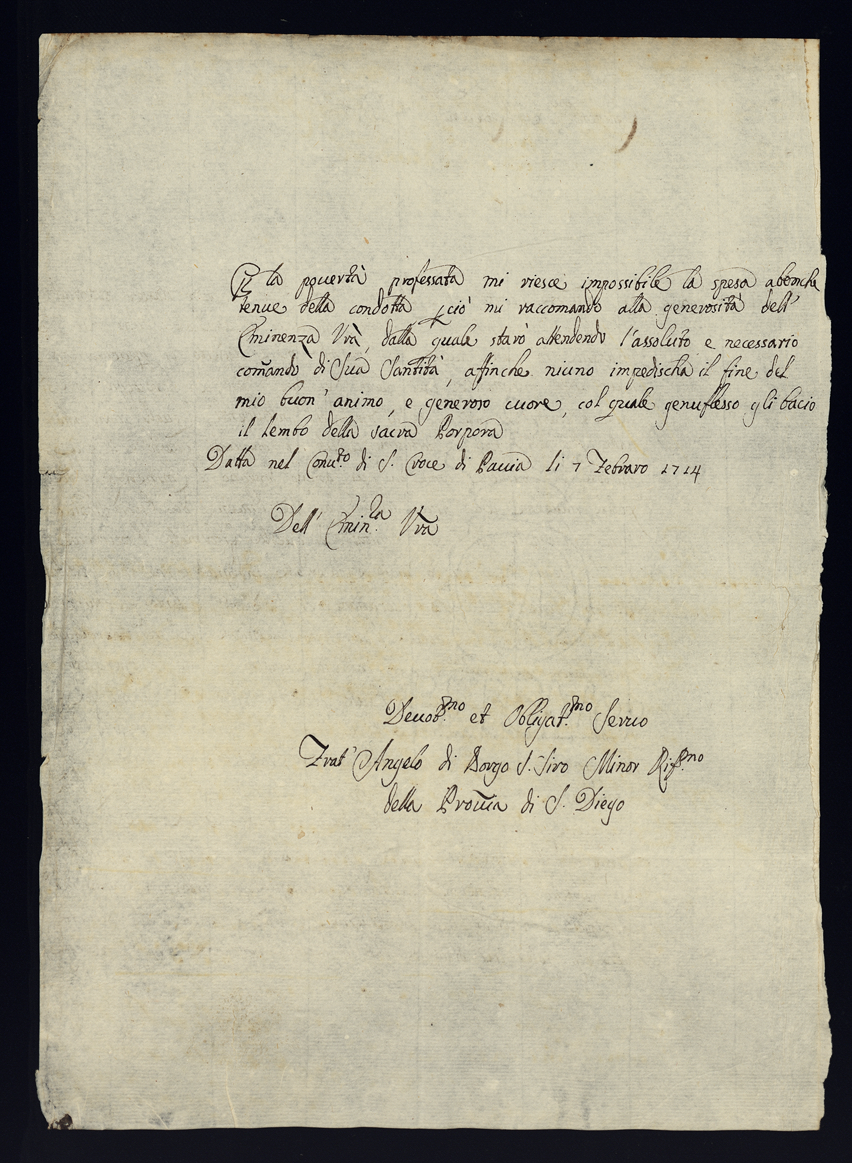 P la pouertà professata mi riesce impossibile la spesa abenche
tenue della condotta pciò mi raccomando alla generosità dell'
Eminenza Vrà, dalla quale starò attendendo l'assoluto e necessario
comãndo di Sua Santità, affinche niuno impedischa il fine del
mio buon' animo, e generoso cuore, col quale genuflesso gli bacio
il lembo della sacra Porpora
Datta nel Conu.to di S. Croce di Pauia li 7 Febraro 1714
Dell' Emin.za Vrã
Deuot.mo et Obligat.mo Seruo
Frat' Angelo di Borgo S. Siro Minor Rif.no
della Prouīa di S. Diego